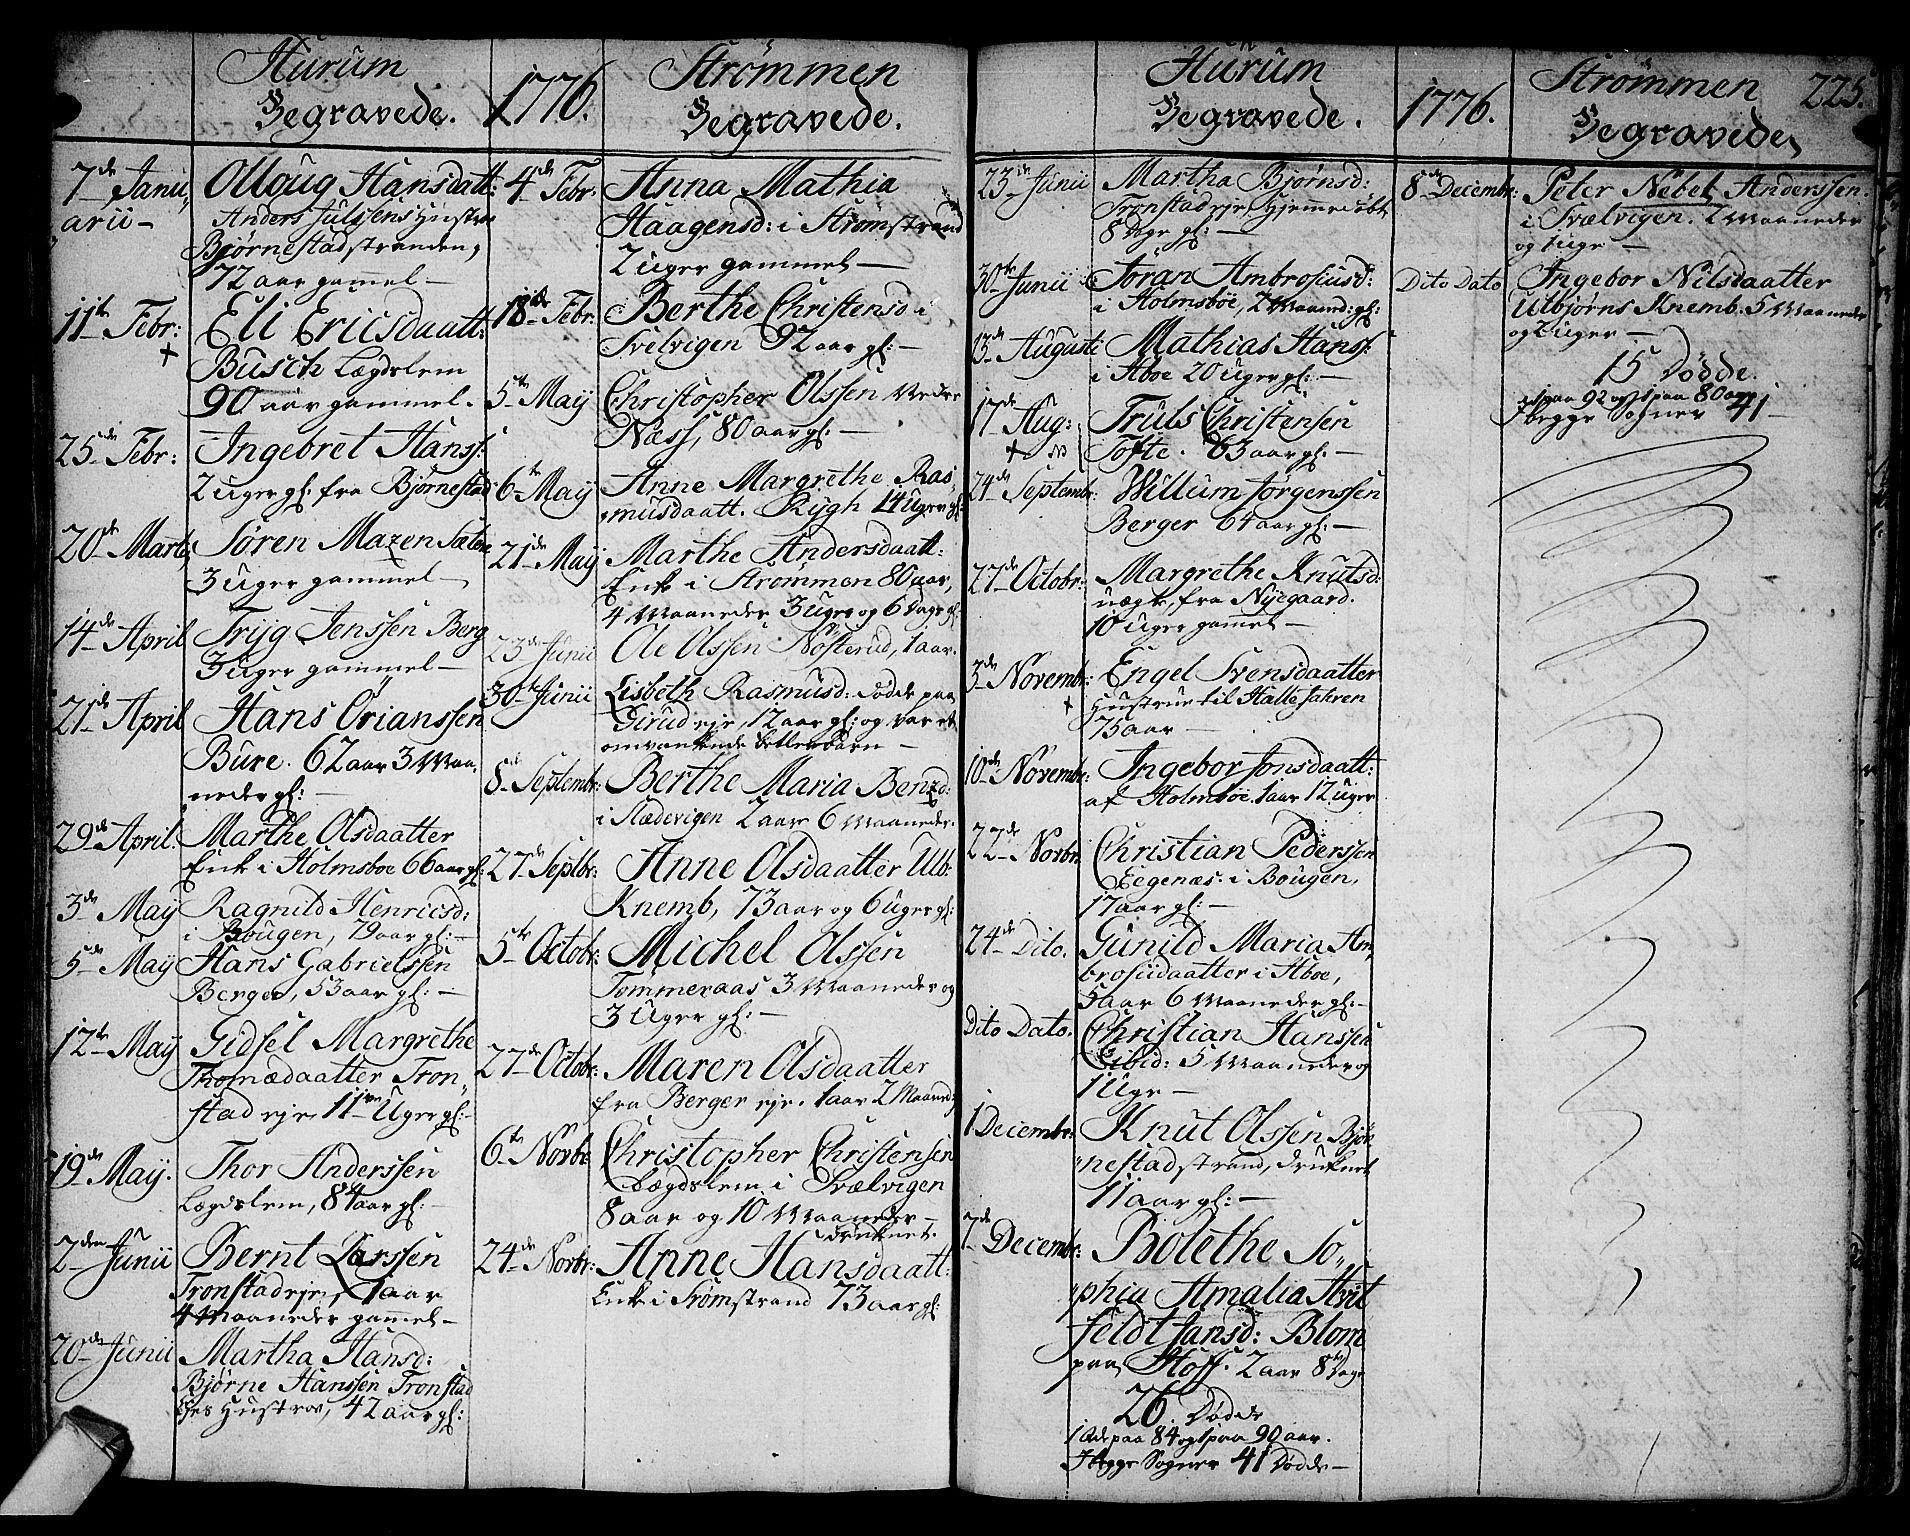 Hurum
Begravede.
7de Janu
arii –
Olloug Hansdatt:
Anders Julssens Hustru
Bjørnestadstranden,
72 aar gammel –
11te Febr:
Eli Ericsdaatt:
Busch Lægdslem
90 aar gammel.
25de Febr:
Ingebret Hanss:
2 Uger gl: fra Bjørnestad
20de Martii
Søren Mazen Sætre
3 Uger gammel –
14de April
Trÿg Jenssen Berg
3 Uger gammel –
21de April
Hans Ørianssen
Bure. 62 aar 3 Maa,
neder gl: –
29de April.
Marthe Olsdaatter
Enke i Holmsboe 66 aar gl:
3de Maÿ
Ragnild Henricsd:
i Bougen, 79 aar gl: –
5de Maÿ
Hans Gabrielssen
Berger, 53 aar gl: –
12te Maÿ
Gidsel Margrethe
Thomædaatter Tron,
stad eje, 11ve Uger gl:
19de Maÿ.
Thor Anderssen
Lægdslem, 84 aar gl: –
2den Junii
Bernt Larssen
Tronstad eje, 1 aar
4 Maaneder gammel –
20de Junii
Martha Hansd:
Bjørne Hanssen Tronstad
Ejes Hustrue, 42 aar gl:
1776.
Strømmen
Begravede.
4de Febr:
Anna Mathia
Haagensd: i Strømstrand
2 Uger gammel –
18de Febr:
Berthe Christensd i
Svelvigen 92 aar gl: –
5te Maÿ
Christopher Olssen Neder
Næss, 80 aar gl: –
6te Maÿ
Anne Margrethe Ras,
musdaatt. Rÿgh 14 Uger gl:
21de Maÿ
Marthe Andersdaatt:
Enke i Strømmen 80 aar,
4 Maaneder 3 Uger og 6 Dage gl:
23de Junii
Ole Olssen Nøsterud, 1 aar.
30te Junii
Lisbeth Rasmusd: døde paa
Girud eje, 12 aar gl: og var et
omvankende betlerbarn –
8de Septembr:
Berthe Maria Benzd:
i Stædevigen 2 aar 6 Maaneder
27de Septbr:
Anne Olsdaatter Ulb:
Knemb, 73 aar og 6 Uger gl:
5te Octobr:
Michel Olssen
Tommeraas 3 Maaneder og
3 Uger gl: –
27de Octobr:
Maren Olsdaatter
fra Berger eje. 1 aar 2 Maaned:
6te Novbr
Christopher Christensen
Lægdslem i Svælvigen
8 aar og 10 Maaneder –
druknet.
24de Novbr:
Anne Hansdaatt:
Enke i Strømstrand 73 aar gl:
Hurum
Begravede.
23de Junii
Martha Bjørnsd:
Tronstad eje, hjemmedøbt
8 Dage gl: –
30te Junii
Joran Ambrosiusd:
i Holmsboe, 2 Maaned: gl:
13de Augusti
Mathias Hanss:
i Aboe 20 Uger gl: –
17de Aug:
Truls Christensen
Tofte. 63 aar gl: –
24de Septembr:
Willum Jørgenssen
Berger 64 aar gl: –
27de Octobr:
Margrethe Knutsd:
uægte, fra Nÿegaard.
10 Uger gammel –
3de Novembr:
Engel Svensdaatter
Hustrue til Halle Sahren
75 aar –
10de Novembr:
Ingebor Jonsdaatt:
af Holmsboe, 1 aar 12 Uger
22de Novbr
Christian Pederssen
Eegenæs: i Bougen,
17 aar gl: –
24de Dito.
Gunild Maria Am,
brosiidaatter i Aboe,
5 aar 6 Maaneder gl: –
Dito Dato.
Christian Hanssen
Eibid: 5 Maaneder og
1 Uge –
1 Decembr:
Knut Olssen Bjør,
nestad strand, druknet
11 aar gl: –
7de Decembr:
Bolethe So,,
phia Amalia Hvit
feldt Jansd: Blom
paa Hoff. 2 aar 8 Dage
26 Døde
1 Ade paa 84 og 1 paa 90 aar.
I begge Sogner 41 Døde –
1776.
Strømmen
Begravede,
225.
8de Decembr:
Peter Nebel Anderssen.
i Svælvigen. 2 Maaneder
og 1 Uge –
Dito Dato
Ingebor Nilsdaatter
Ulbjørns Knemb: 5 Maaneder
og 2 Uger –
15 Døde.
1 paa 92 og 1 paa 80 aar
I begge Sogner 41 –